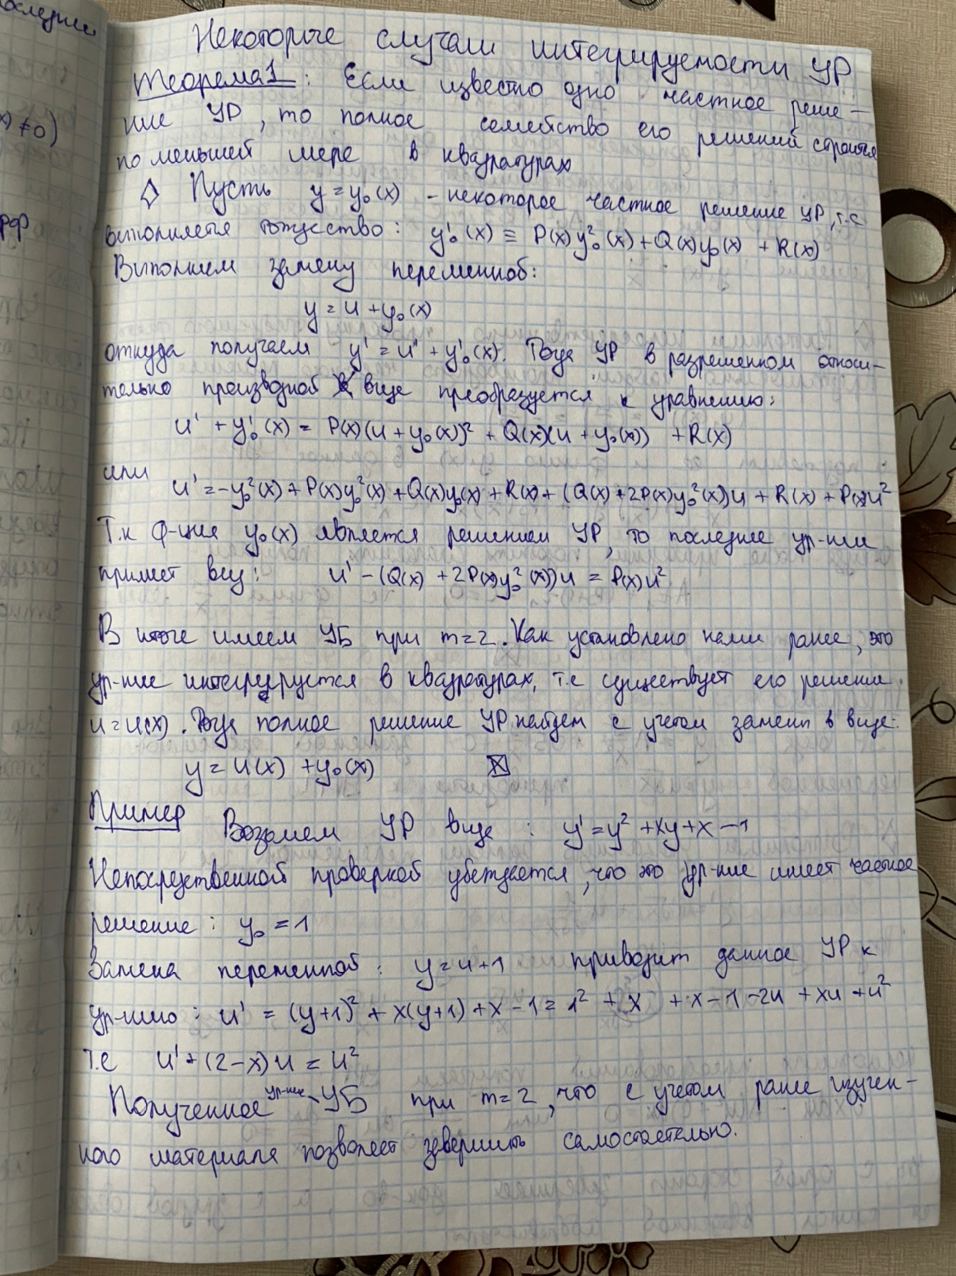 Некоторые случаи интегрируемости УР.
Теорема1: Если известно одно частное реше-
ние УР, то полное семейство его решений строится
по меньшей мере в квадратурах
◊ Пусть y = y₀(x) - некоторое частное решение УР, т.е
выполняется тождество: y₀'(x) ≡ P(x)y₀²(x) + Q(x)y₀(x) + R(x)
Выполнием замену переменной:
y = u + y₀(x)
откуда получаем y' = u' + y₀'(x). Тогда УР в разрешенном относи-
тельно производной виде преобразуется к уравнению:
u' + y₀'(x) = P(x)(u + y₀(x))² + Q(x)(u + y₀(x)) + R(x)
или
u' = -y₀²(x) + P(x)y₀²(x) + Q(x)y₀(x) + R(x) + (Q(x) + 2P(x)y₀²(x))u + R(x) + P(x)u²
Т.к ф-ция y₀(x) является решением УР, то последнее ур-ние
примет вид: u' - (Q(x) + 2P(x)y₀²(x))u = P(x)u²
В итоге имеем УБ при m=2. Как установлено нами ранее, это
ур-ние интегрируется в квадратурах, т.е существует его решение
u = u(x). Тогда полное решение УР найдем с учетом замены в виде:
y = u(x) + y₀(x) ⊠
Пример Возьмем УР вида: y' = y² + xy + x - 1
Непосредственной проверкой убеждается, что это ур-ние имеет частное
решение: y₀ = 1
Замена переменной: y = u + 1 приводит данное УР к
ур-нию: u' = (y+1)² + x(y+1) + x - 1 = 1² + x + x - 1 - 2u + xu + u²
т.е u' + (2-x)u = u²
Полученное ур-ние УБ при m=2, что с учетом ранее изучен-
ного материала позволяет завершить самостоятельно.
последнее
x) ≠0)